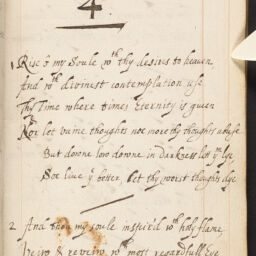 4.
1 Rise ô my Soule wth thy desires to heaven
And wth divinest contemplation use
Thy Time where times Eternity is given
And let vaine thoughts noe more thy thoughts abuse
But downe low downe in darkness let ym lye
Soe live ye better, let thy worst thoughts dye
2 And thou my soule inspir'd wth holy flame
View & review wth most regardfull Eye